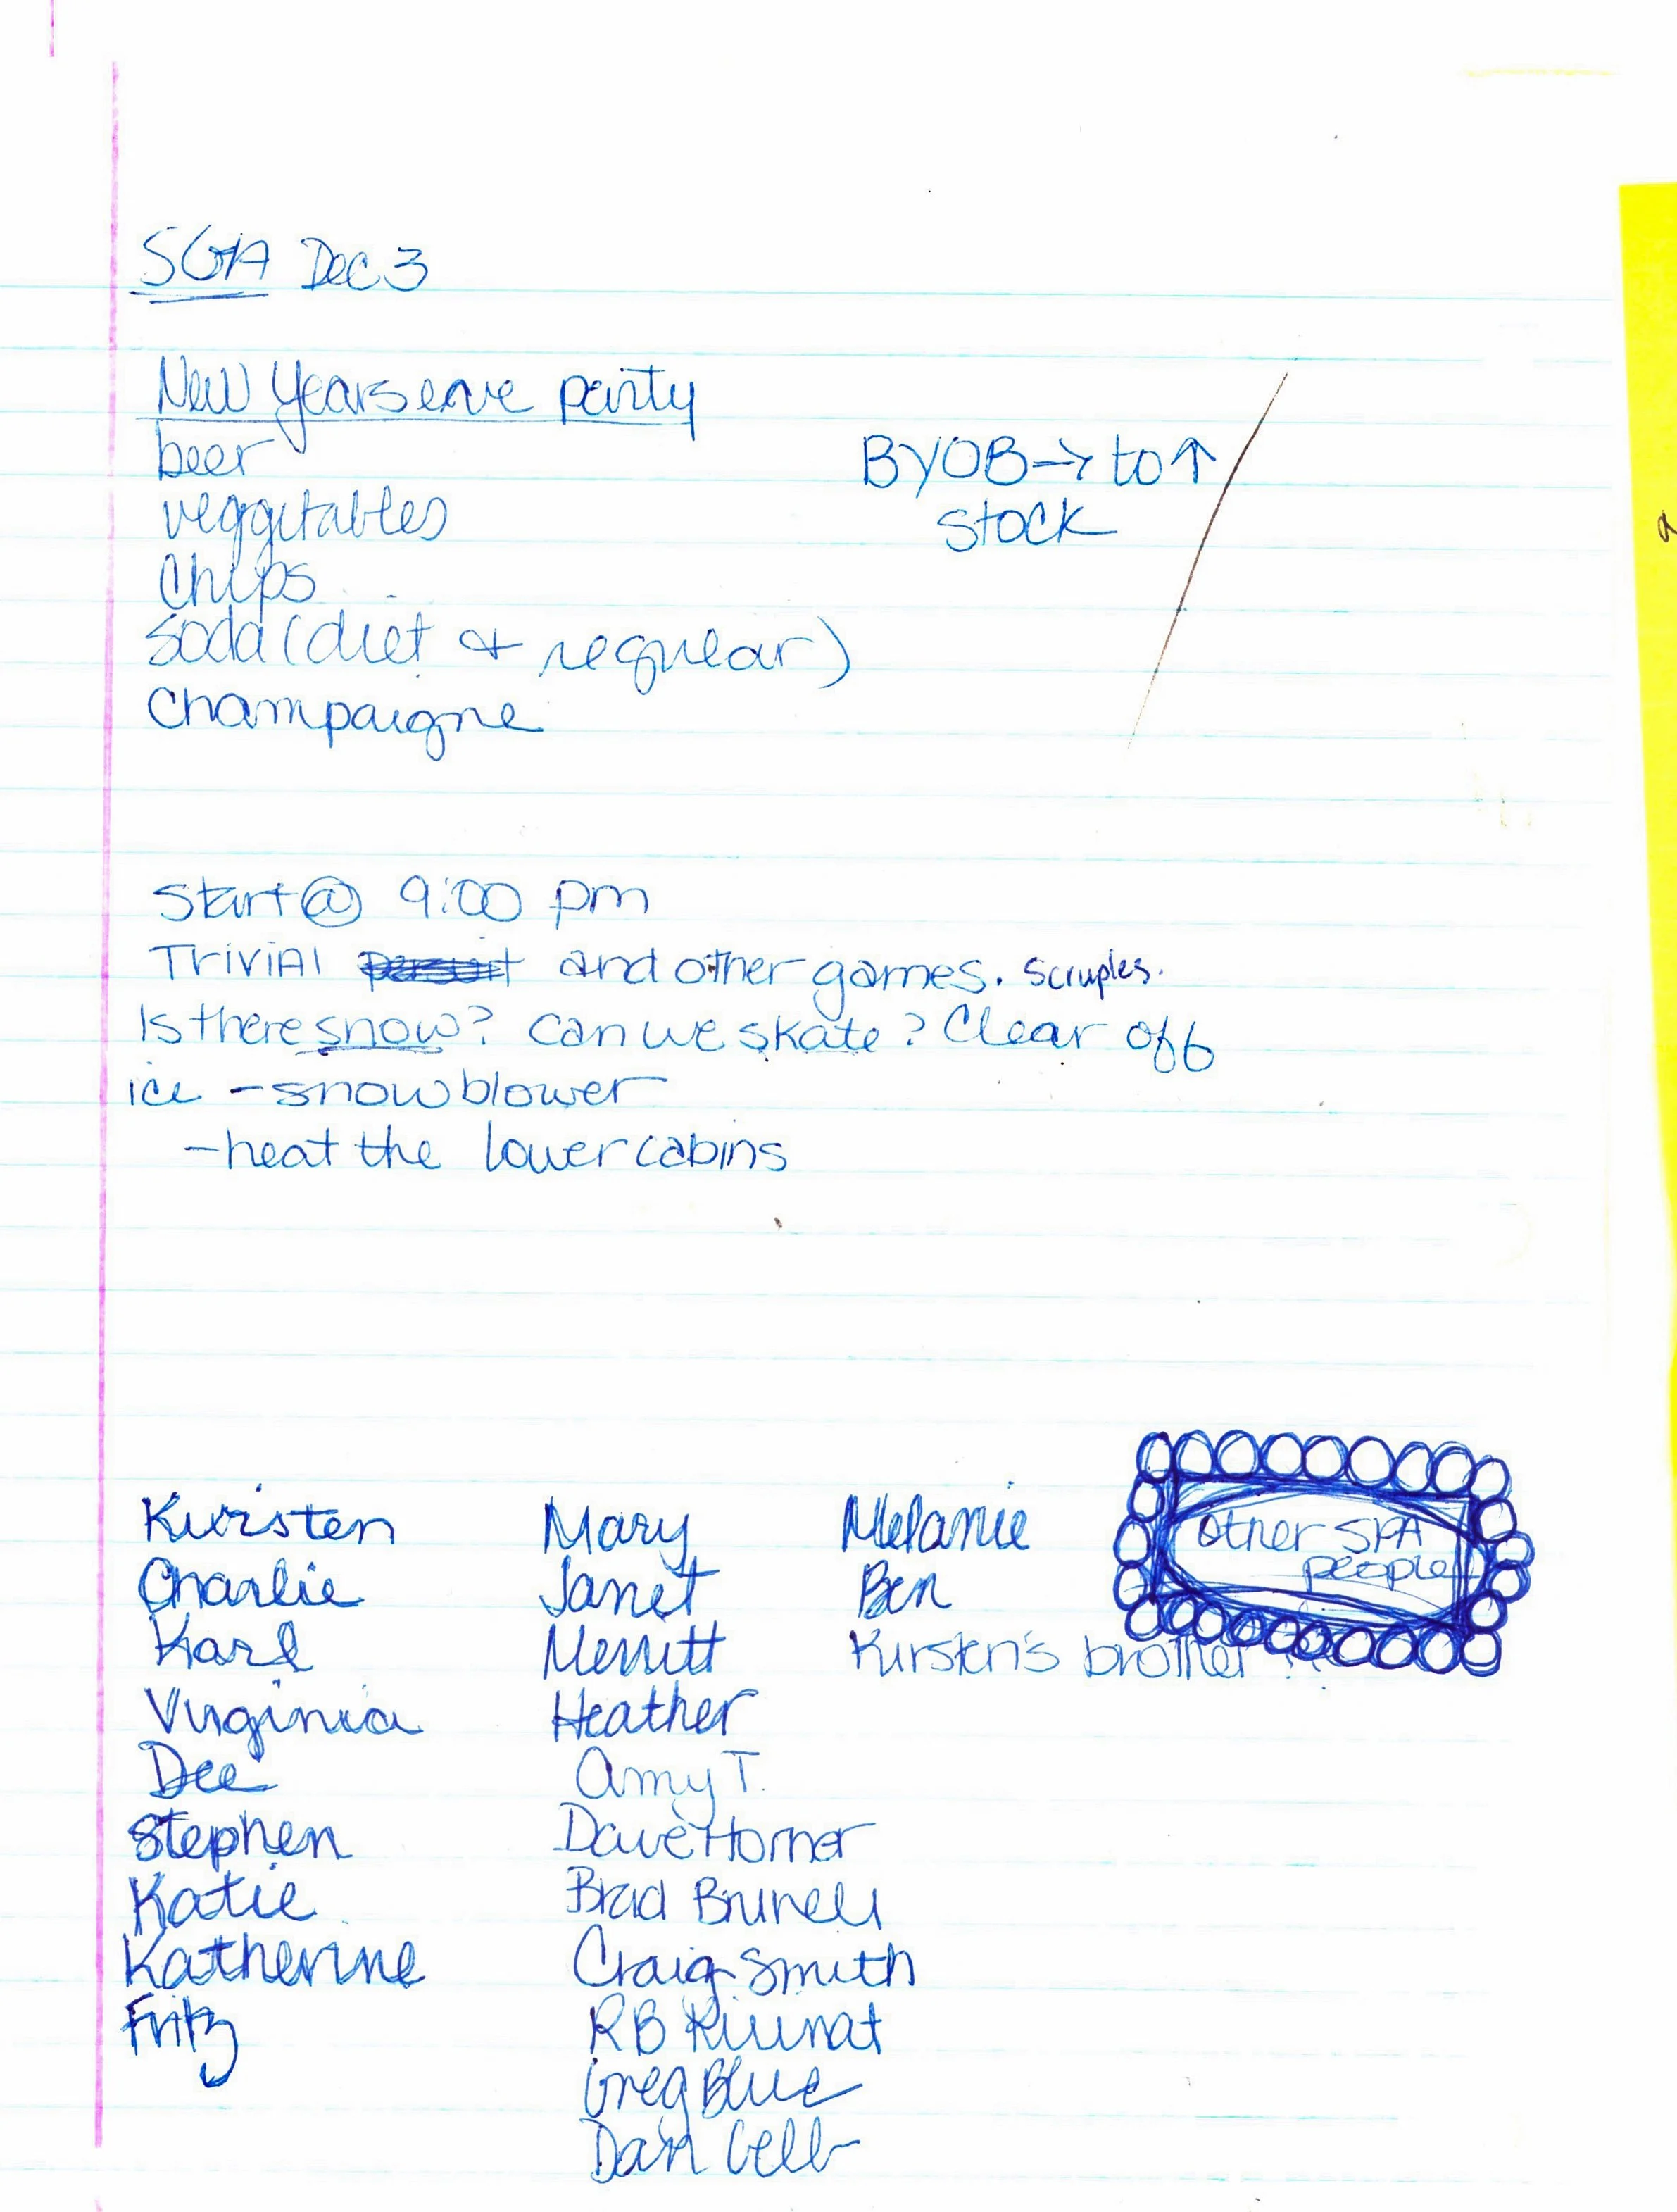 SGA Dec 3
New Years eve party
beer
veggitables
Chips
soda (diet & regular)
Champaigne
BYOB → to ↑
stock
Start @ 9:00 pm
Trivial persuit and other games. Scruples.
Is there snow? Can we skate? Clear off
ice - snow blower
- heat the lower cabins
Kirsten
Charlie
Karl
Virginia
Dee
Stephen
Katie
Katherine
Fritz
Mary
Janet
Merritt
Heather
Amy T.
Dave Horner
Brad Brunell
Craig Smith
RB
Greg Blue
Dan
Melanie
Ben
Kirsten's brother
other SPA
people